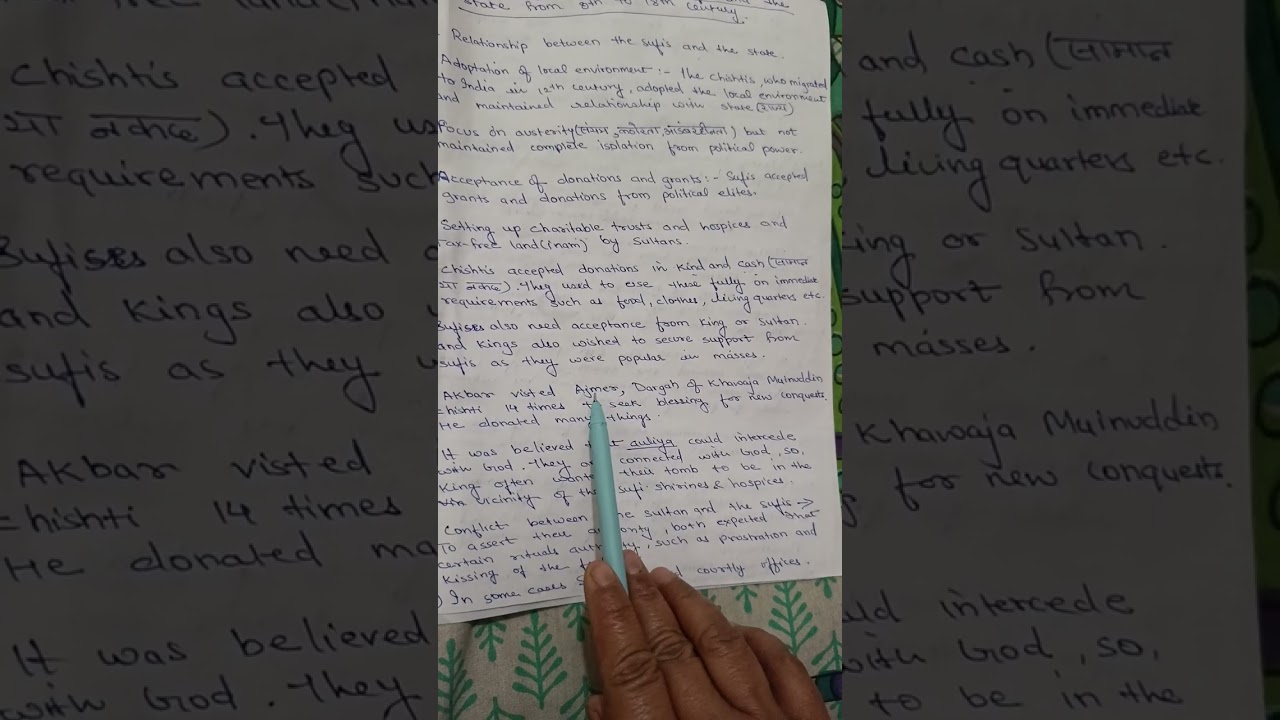 state from 8th to 18th century.
Relationship between the sufis and the state.
Adoptation of local environment :- the chishtis, who migrated
to India in 12th century, adopted the local environment
and maintained relationship with state (राज्य)
Focus on austerity (संयम, कठोरता, आडंबरहीनता) but not
maintained complete isolation from political power.
Acceptance of donations and grants :- Sufis accepted
grants and donations from political elites.
Setting up charitable trusts and hospices and
Tax-free land (inam) by Sultans.
Chishtis accepted donations in kind and cash (सामान
या नकद). They used to use these fully on immediate
requirements such as food, clothes, living quarters etc.
Sufises also need acceptance from King or Sultan.
and Kings also wished to secure support from
sufis as they were popular in masses.
Akbar visted Ajmer, Dargah of Khawaja Muinuddin
chishti 14 times to seek blessing for new conquests.
He donated many things.
It was believed that auliya could intercede
with God. They are connected with God, so,
King often want their tomb to be in the
vicinity of the sufi shrines & hospices.
Conflict between the sultan and the sufis →
To assert their authority, both expected that
certain rituals authority, such as prostration and
Kissing of the
In some cases courtly offices.